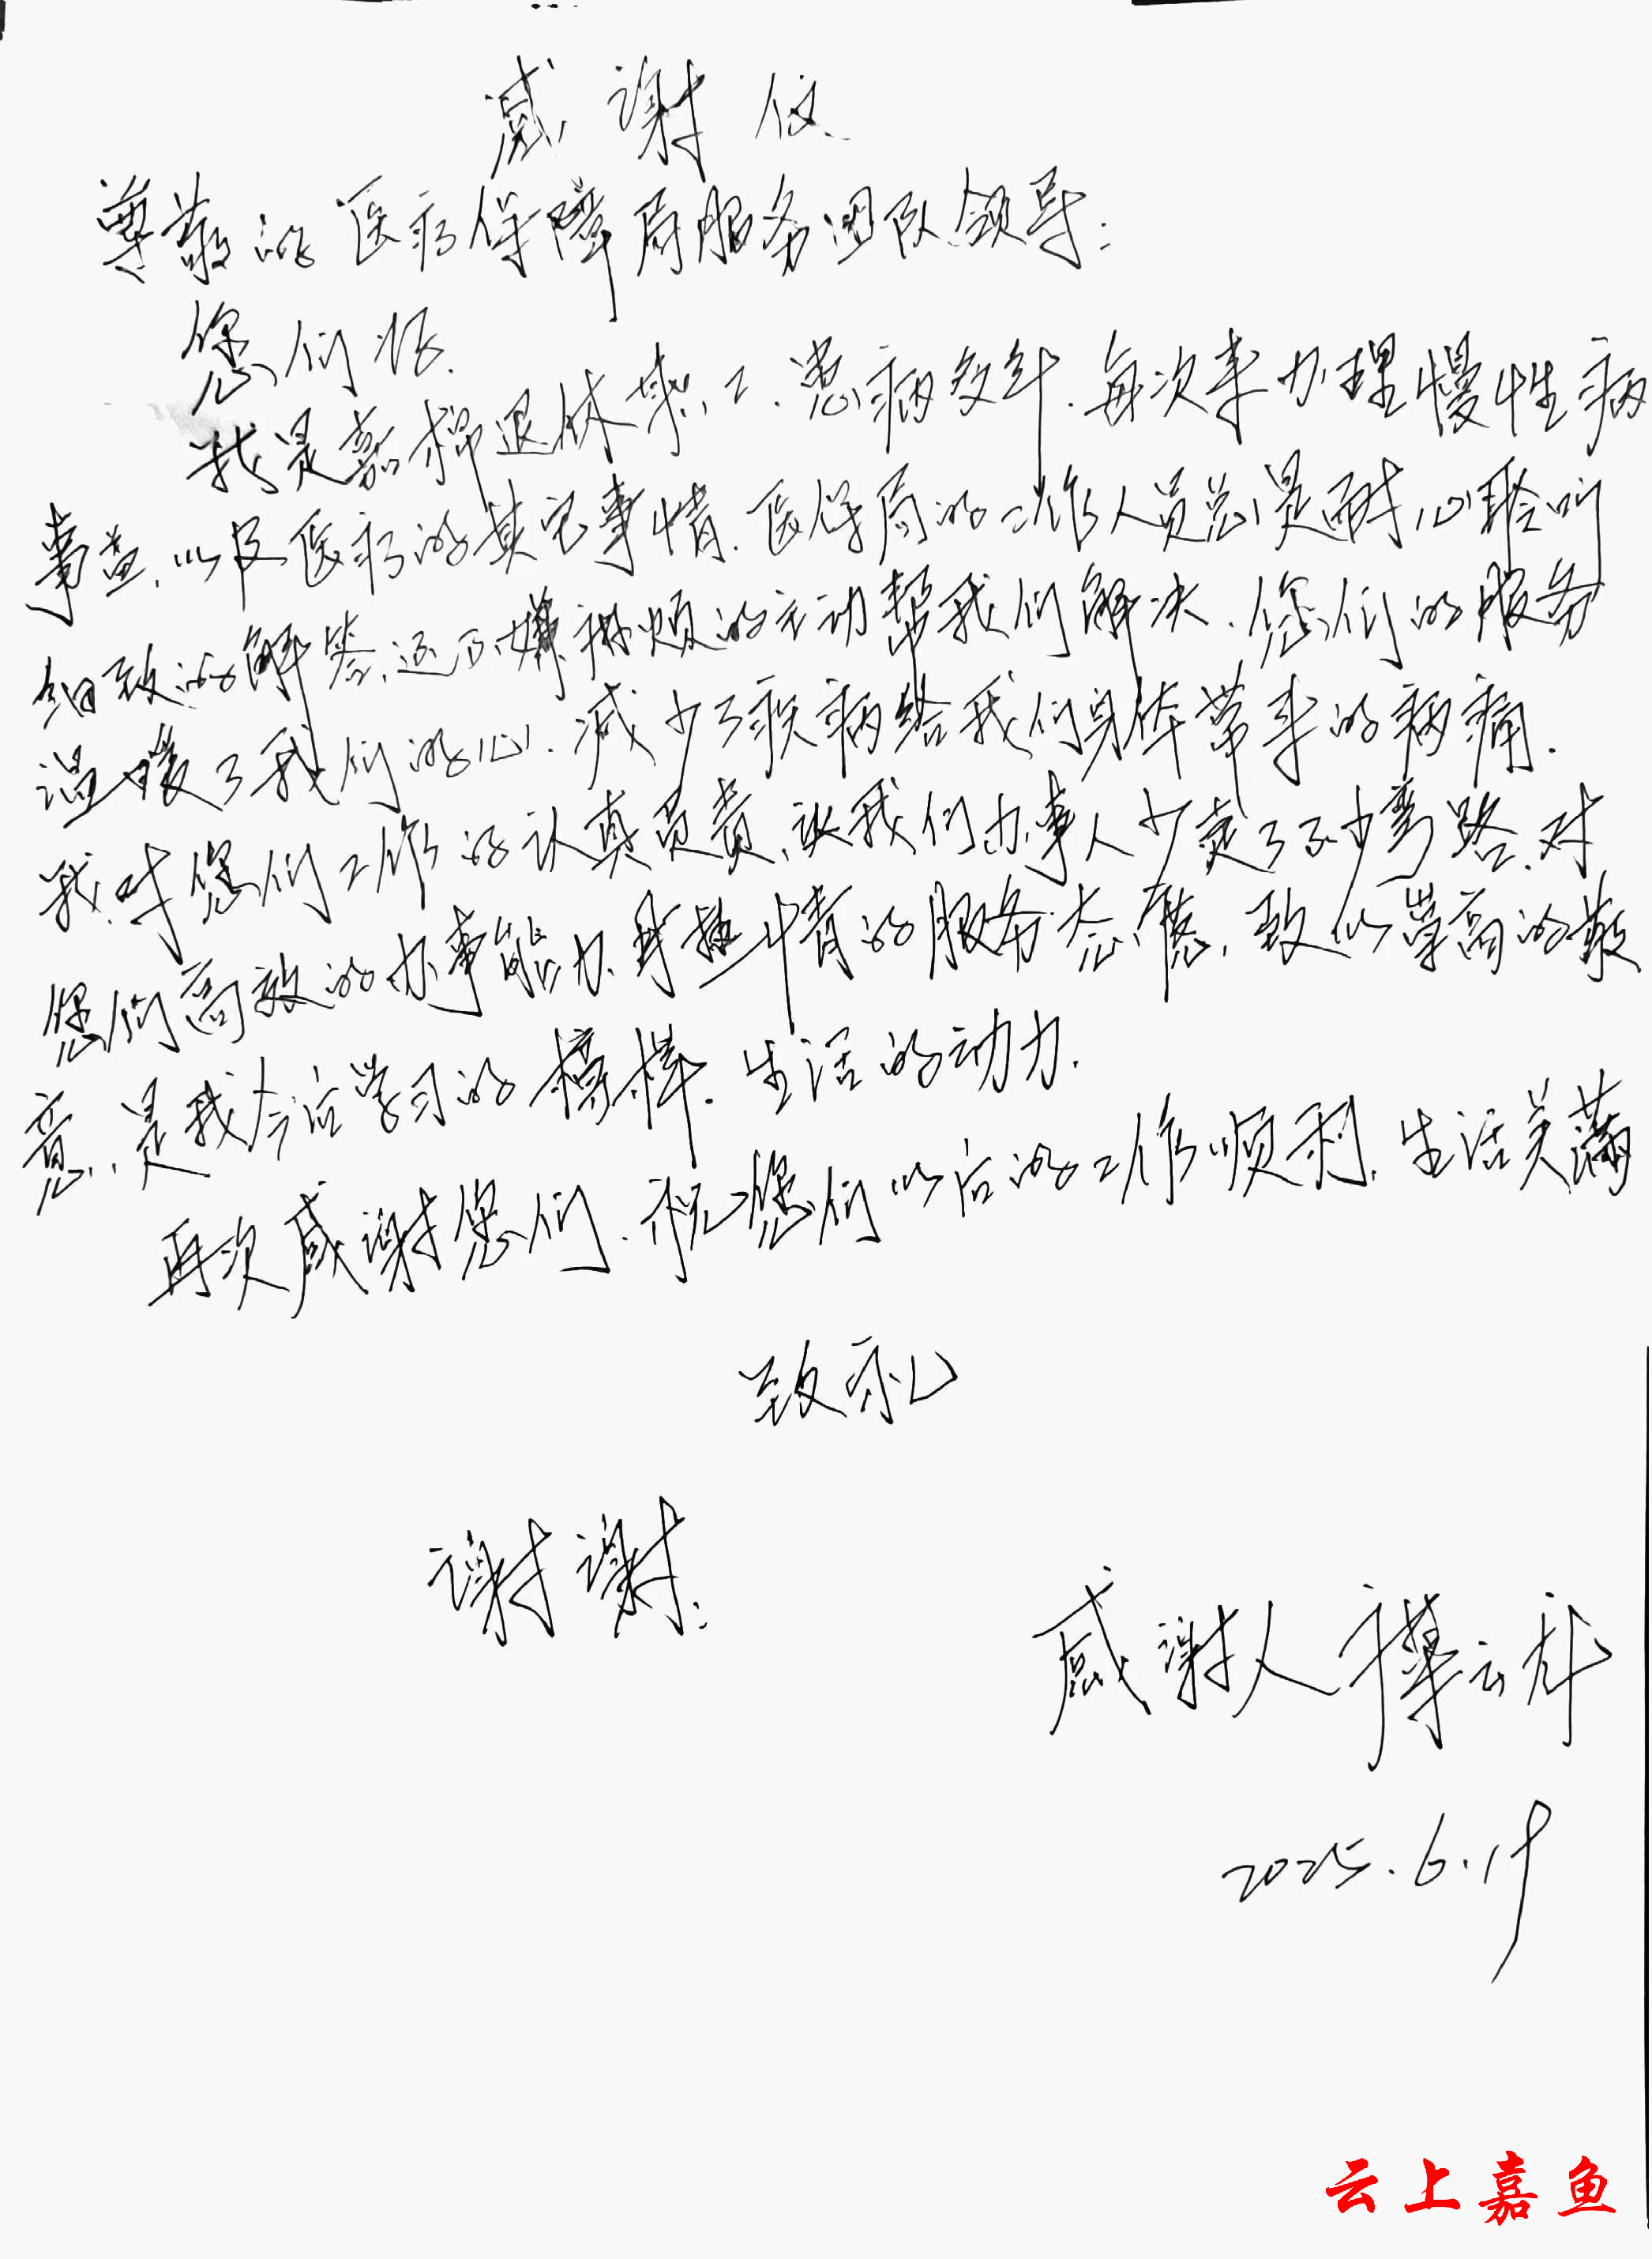 感谢信
尊敬的医疗保障局服务团队领导:
您们好.
我是嘉棉退休职工.患病多年.每次来办理慢性病
事宜.以及医疗的其它事情.医保局的工作人员总是耐心聆听
细致的解答.还不嫌麻烦的主动帮我们解决.您们的服务
温暖了我们的心.减少了疾病给我们身体带来的病痛.
我对您们工作的认真负责,让我们办事人少走了不少弯路.对
您们高效的办事能力.和热情的服务态度,致以崇高的敬
意.是我今后学习的榜样.生活的动力.
再次感谢您们.祝您们以后的工作顺利.生活美满
致礼
谢谢:
感谢人 云
2025.6.19
云上嘉鱼